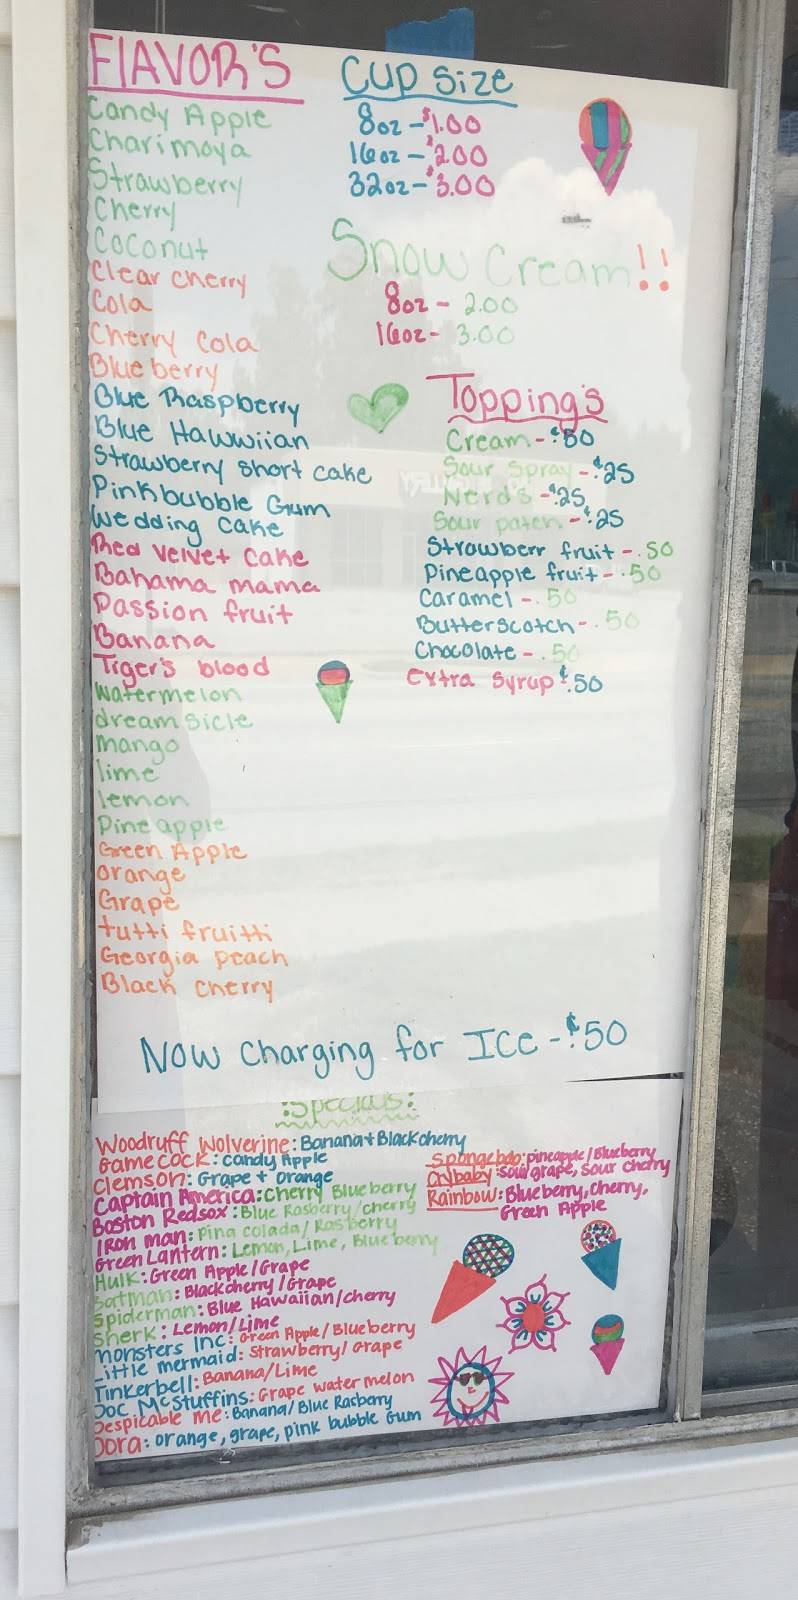 FlAVOR'S
Candy Apple
Charimoya
Strawberry
Cherry
Coconut
Clear cherry
Cola
Cherry Cola
Blueberry
Blue Raspberry
Blue Hawwiian
Strawberry Short cake
Pink bubble Gum
Wedding cake
Red velvet cake
Bahama mama
Passion fruit
Banana
Tiger's blood
Watermelon
dreamsicle
mango
lime
lemon
Pineapple
Green Apple
orange
Grape
tutti fruitti
Georgia peach
Black cherry
Cup Size
8oz - $1.00
16oz - $2.00
32oz - $3.00
Snow Cream!!
8oz - 2.00
16oz - 3.00
Topping's
Cream - $.50
Sour Spray - $.25
Nerd's - $.25
Sour patch - $.25
Strawberr fruit - .50
Pineapple fruit - .50
Caramel - .50
Butterscotch - .50
Chocolate - .50
Extra Syrup $.50
Now Charging for ICE - $.50
:Specials:
Woodruff Wolverine: Banana + Black cherry
Gamecock: Candy Apple
Clemson: Grape + orange
Captain America: Cherry Blueberry
Boston Redsox: Blue Rasberry/cherry
IRon man: pina colada/Rasberry
Green Lantern: Lemon, Lime, Blueberry
Hulk: Green Apple/Grape
Batman: Blackcherry/Grape
Spiderman: Blue Hawaiian/cherry
Sherk: Lemon/Lime
Monsters Inc: Green Apple/Blueberry
Little mermaid: Strawberry/Grape
Tinkerbell: Banana/Lime
Doc McStuffins: Grape water melon
Despicable me: Banana/Blue Rasberry
Dora: orange, grape, pink bubble Gum
Spongebob: pineapple/Blueberry
Crybaby: Sour grape, Sour cherry
Rainbow: Blueberry, cherry,
Green Apple